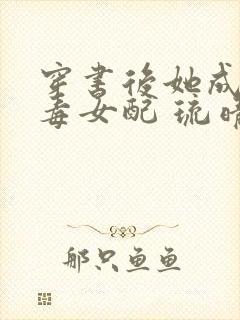 穿书后她成
毒女配 琉
那只鱼鱼